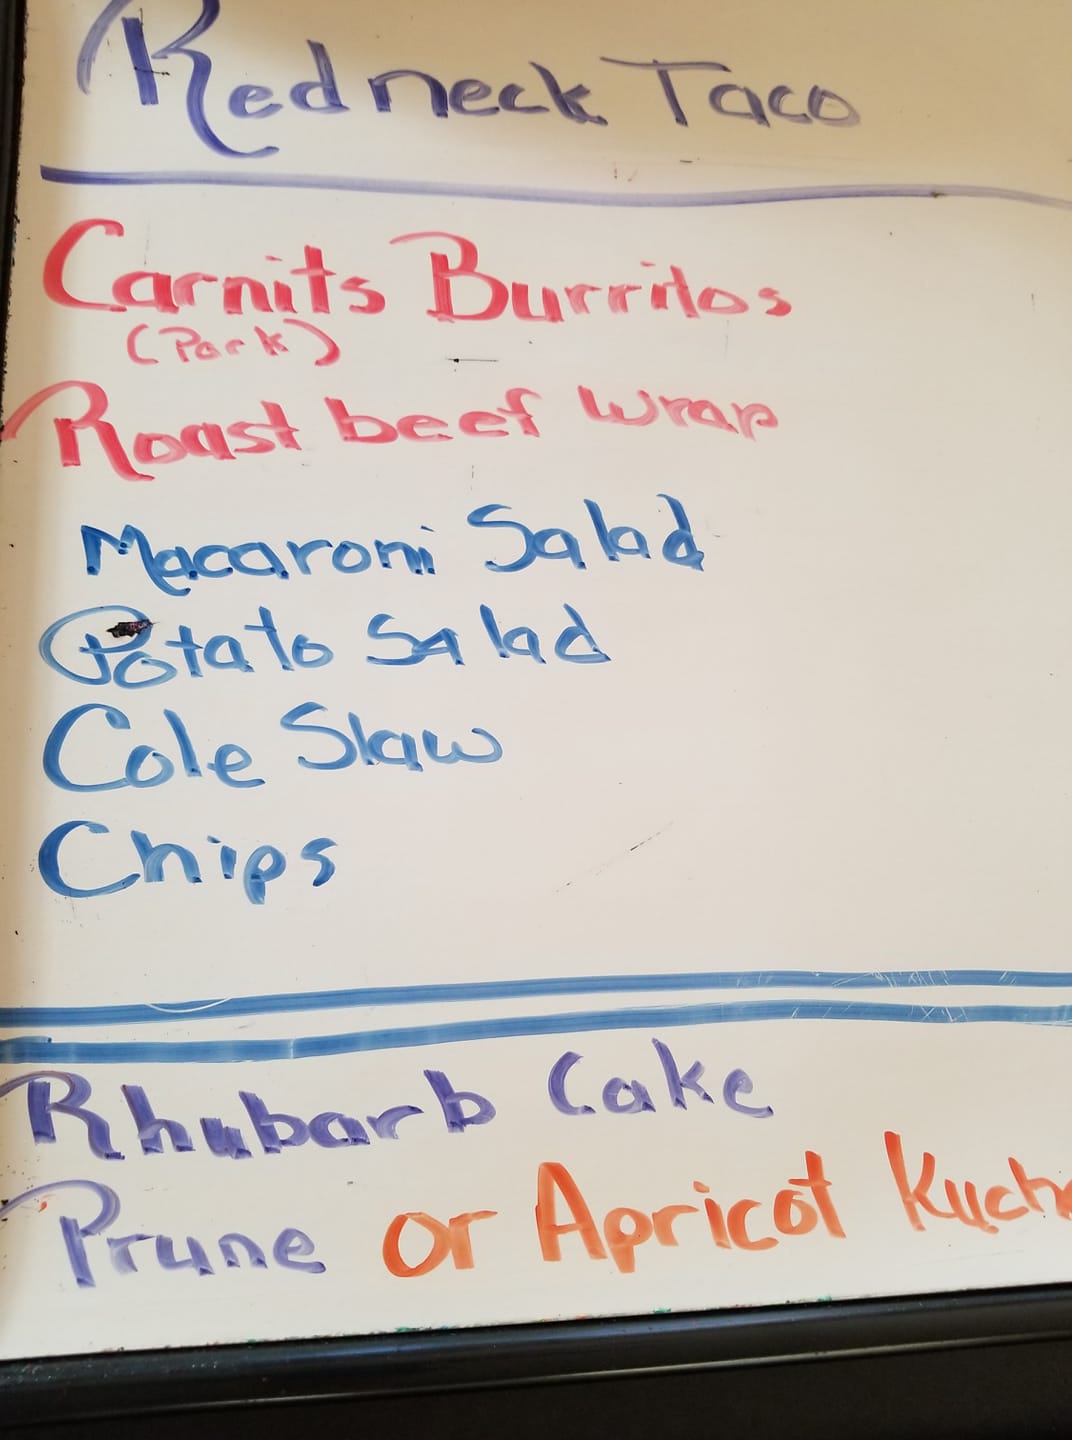 Redneck Taco
Carnits Burritos
(Pork)
Roast beef wrap
Macaroni Salad
Potato Salad
Cole Slaw
Chips
Rhubarb Cake
Prune or Apricot Kuche